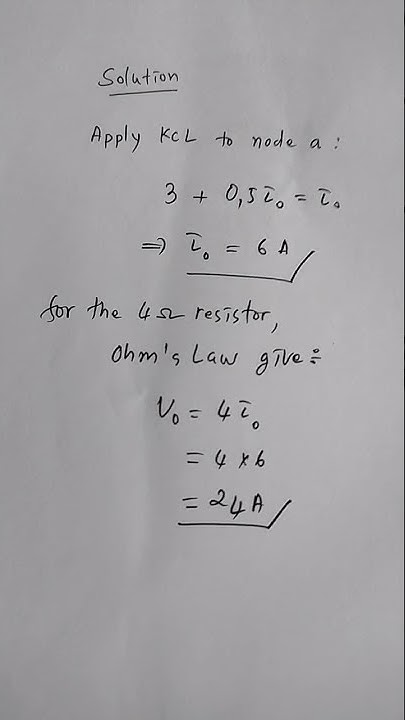 Solution
Apply KCL to node a :
3 + 0,5 i₀ = i₀
⇒ i₀ = 6 A
for the 4 Ω resistor,
Ohm's Law give ÷
V₀ = 4 i₀
= 4 × 6
= 24 A